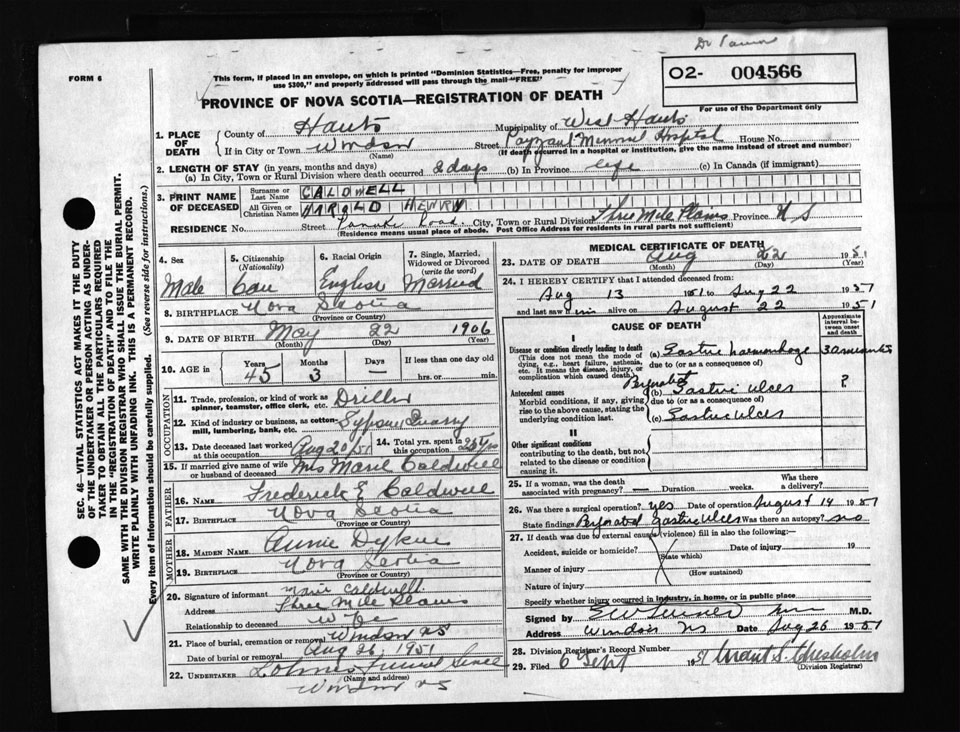 FORM 6
This form, if placed in an envelope, on which is printed "Dominion Statistics—Free, penalty for improper
use $300," and properly addressed will pass through the mail "FREE"
O2- 004566
For use of the Department only
PROVINCE OF NOVA SCOTIA—REGISTRATION OF DEATH
SEC. 46—VITAL STATISTICS ACT MAKES IT THE DUTY
OF THE UNDERTAKER OR PERSON ACTING AS UNDER-
TAKER TO OBTAIN ALL THE PARTICULARS REQUIRED
IN THE "REGISTRATION OF DEATH" AND TO FILE THE
SAME WITH THE DIVISION REGISTRAR WHO SHALL ISSUE THE BURIAL PERMIT.
WRITE PLAINLY WITH UNFADING INK. THIS IS A PERMANENT RECORD.
Every item of information should be carefully supplied. (See reverse side for instructions.)
1. PLACE OF DEATH
County of Hants Municipality of West Hants
If in City or Town Windsor Street Payzant Memorial Hospital House No.
(Name) (If death occurred in a hospital or institution, give the name instead of street and number)
2. LENGTH OF STAY (in years, months and days)
(a) In City, Town or Rural Division where death occurred 8 days (b) In Province life (c) In Canada (if immigrant)
3. PRINT NAME OF DECEASED
Surname or Last Name CALDWELL
All Given or Christian Names HAROLD HENRY
RESIDENCE No. Street Road City, Town or Rural Division Three Mile Plains Province N S
(Residence means usual place of abode. Post Office Address for residents in rural parts not sufficient)
4. Sex Male
5. Citizenship (Nationality) Can
6. Racial Origin English
7. Single, Married, Widowed or Divorced (write the word) Married
8. BIRTHPLACE Nova Scotia
(Province or Country)
9. DATE OF BIRTH May 22 1906
(Month) (Day) (Year)
10. AGE IN Years 45 Months 3 Days — If less than one day old
hrs. or min.
OCCUPATION
11. Trade, profession, or kind of work as spinner, teamster, office clerk, etc. Driller
12. Kind of industry or business, as cotton-mill, lumbering, bank, etc. Gypsum Quarry
13. Date deceased last worked at this occupation Aug 20/51 14. Total yrs. spent in this occupation
15. If married give name of wife or husband of deceased Mrs Marie Caldwell
FATHER
16. NAME Frederick E Caldwell
17. BIRTHPLACE Nova Scotia
(Province or Country)
MOTHER
18. MAIDEN NAME Annie
19. BIRTHPLACE Nova Scotia
(Province or Country)
20. Signature of informant Marie Caldwell
Address Three Mile Plains
Relationship to deceased Wife
21. Place of burial, cremation or removal Windsor NS
Date of burial or removal Aug 26, 1951
22. UNDERTAKER Funeral
(Name and address)
Windsor NS
MEDICAL CERTIFICATE OF DEATH
23. DATE OF DEATH Aug 22 1951
(Month) (Day) (Year)
24. I HEREBY CERTIFY that I attended deceased from:
Aug 13 1951 to Aug 22 1951
and last saw him alive on August 22 1951
CAUSE OF DEATH
Approximate interval between onset and death
I
Disease or condition directly leading to death (a) Gastric haemorrhage
(This does not mean the mode of dying, e.g., heart failure, asthenia, etc. It means the disease, injury, or complication which caused death.)
due to (or as a consequence of)
Antecedent causes (b) Perforated Gastric ulcer ?
Morbid conditions, if any, giving rise to the above cause, stating the underlying condition last.
due to (or as a consequence of)
(c) Gastric ulcer
II
Other significant conditions
contributing to the death, but not related to the disease or condition causing it.
25. If a woman, was the death associated with pregnancy? — Duration weeks. Was there a delivery?
26. Was there a surgical operation? yes Date of operation August 14 1951
State findings Perforated Gastric ulcer Was there an autopsy? no
27. If death was due to external causes (violence) fill in also the following:
Accident, suicide or homicide? (State which) Date of injury 19
Manner of injury
(How sustained)
Nature of injury
Specify whether injury occurred in industry, in home, or in public place
Signed by M.D.
Address Windsor NS Date Aug 26 1951
28. Division Registrar's Record Number
29. Filed 6 Sept 1951 Grant S. Chisholm
(Division Registrar)